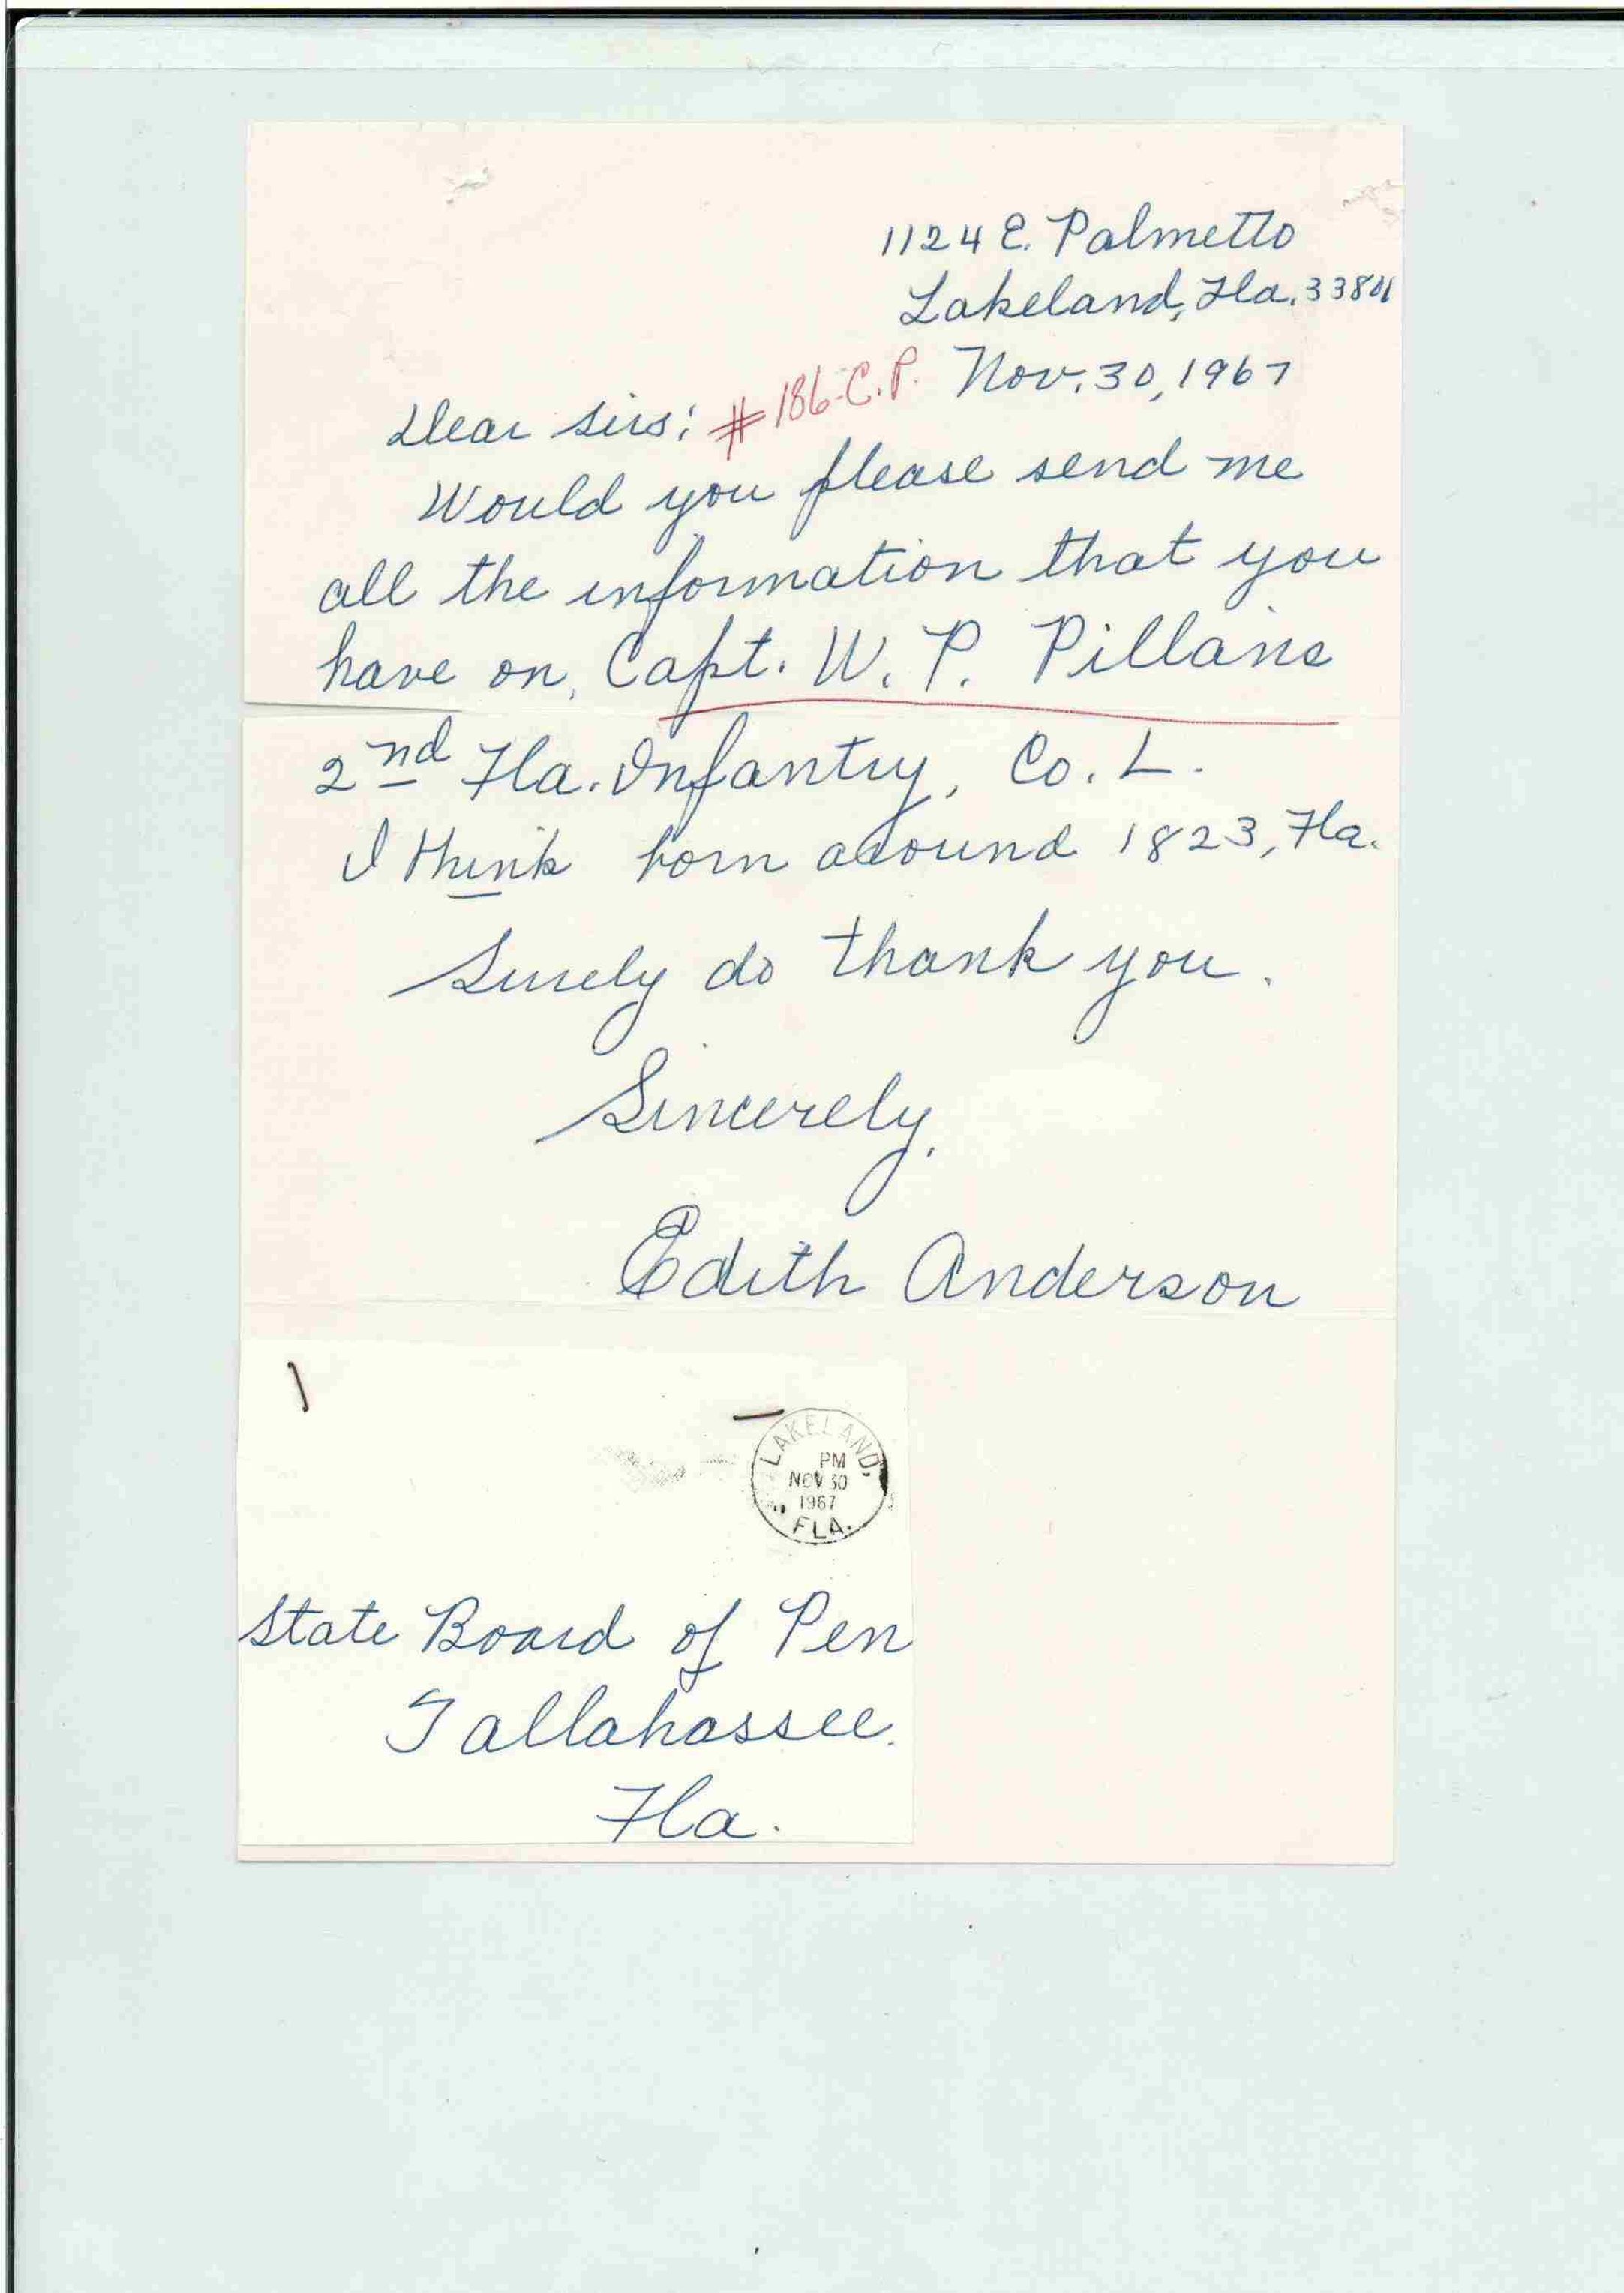 1124 E. Palmetto
Lakeland, Fla. 33801
#186-C.P. Nov. 30, 1967
Dear Sirs:
Would you please send me
all the information that you
have on, Capt. W. P. Pillans
2nd Fla. Infantry, Co. L.
I think born around 1823, Fla.
Surely do thank you.
Sincerely,
Edith Anderson
LAKELAND,
PM
NOV 30
1967
FLA.
State Board of Pen
Tallahassee.
Fla.